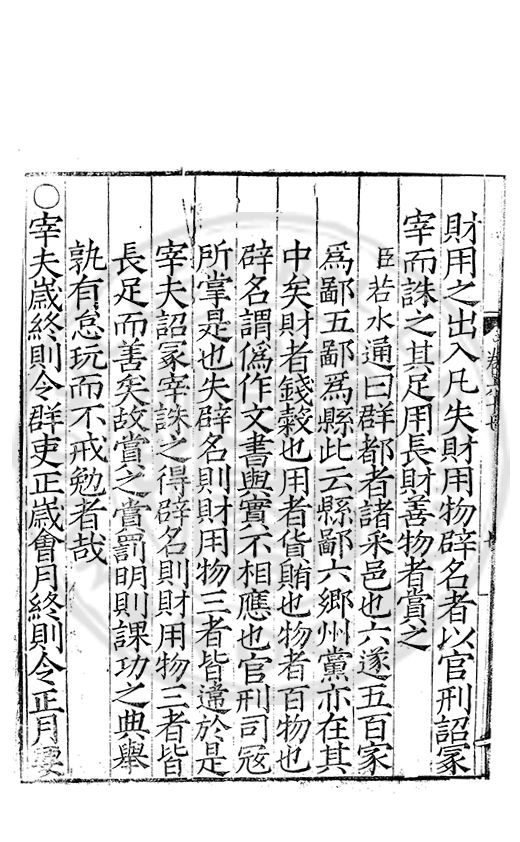 財用之出入凡失財用物辟名者以官刑詔冢
宰而誅之其足用長財善物者賞之
臣若水通曰群都者諸采邑也六遂五百家
爲鄙五鄙爲縣此云縣鄙六鄉州黨亦在其
中矣財者錢穀也用者貨賄也物者百物也
辟名謂僞作文書與實不相應也官刑司寇
所掌是也失辟名則財用物三者皆違於是
宰夫詔冢宰誅之得辟名則財用物三者皆
長足而善矣故賞之賞罰明則課功之典舉
孰有怠玩而不戒勉者哉
○宰夫歲終則令群吏正歲會月終則令正月要